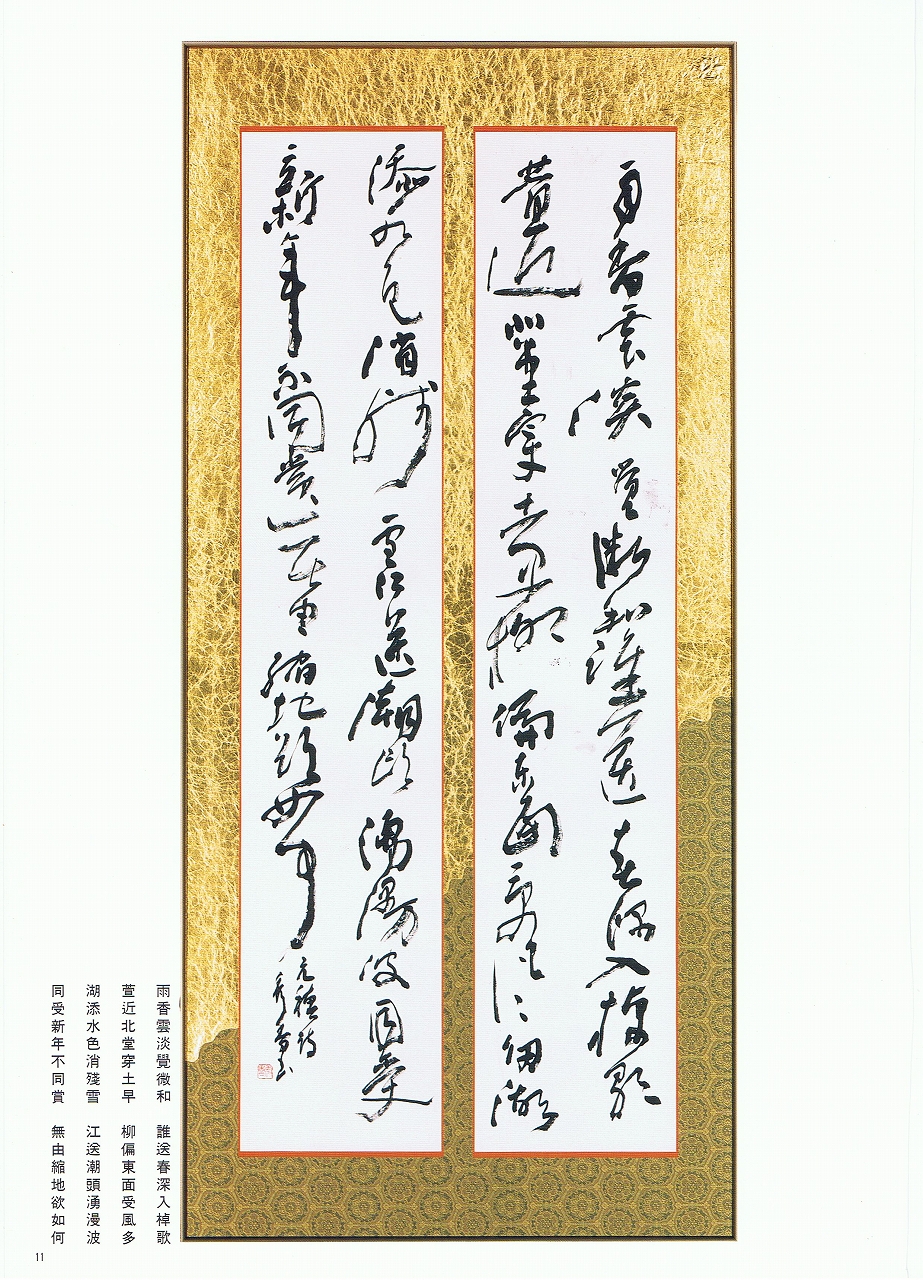 雨香雲淡覺微和誰送春深入棹歌
萱近北堂穿土早柳偏東面受風多湖
添水色消殘雪江送潮頭湧漫波同受
新年不同賞無由縮地欲如何
元稹詩
雨香雲淡覺微和　誰送春深入棹歌
萱近北堂穿土早　柳偏東面受風多
湖添水色消殘雪　江送潮頭湧漫波
同受新年不同賞　無由縮地欲如何
11